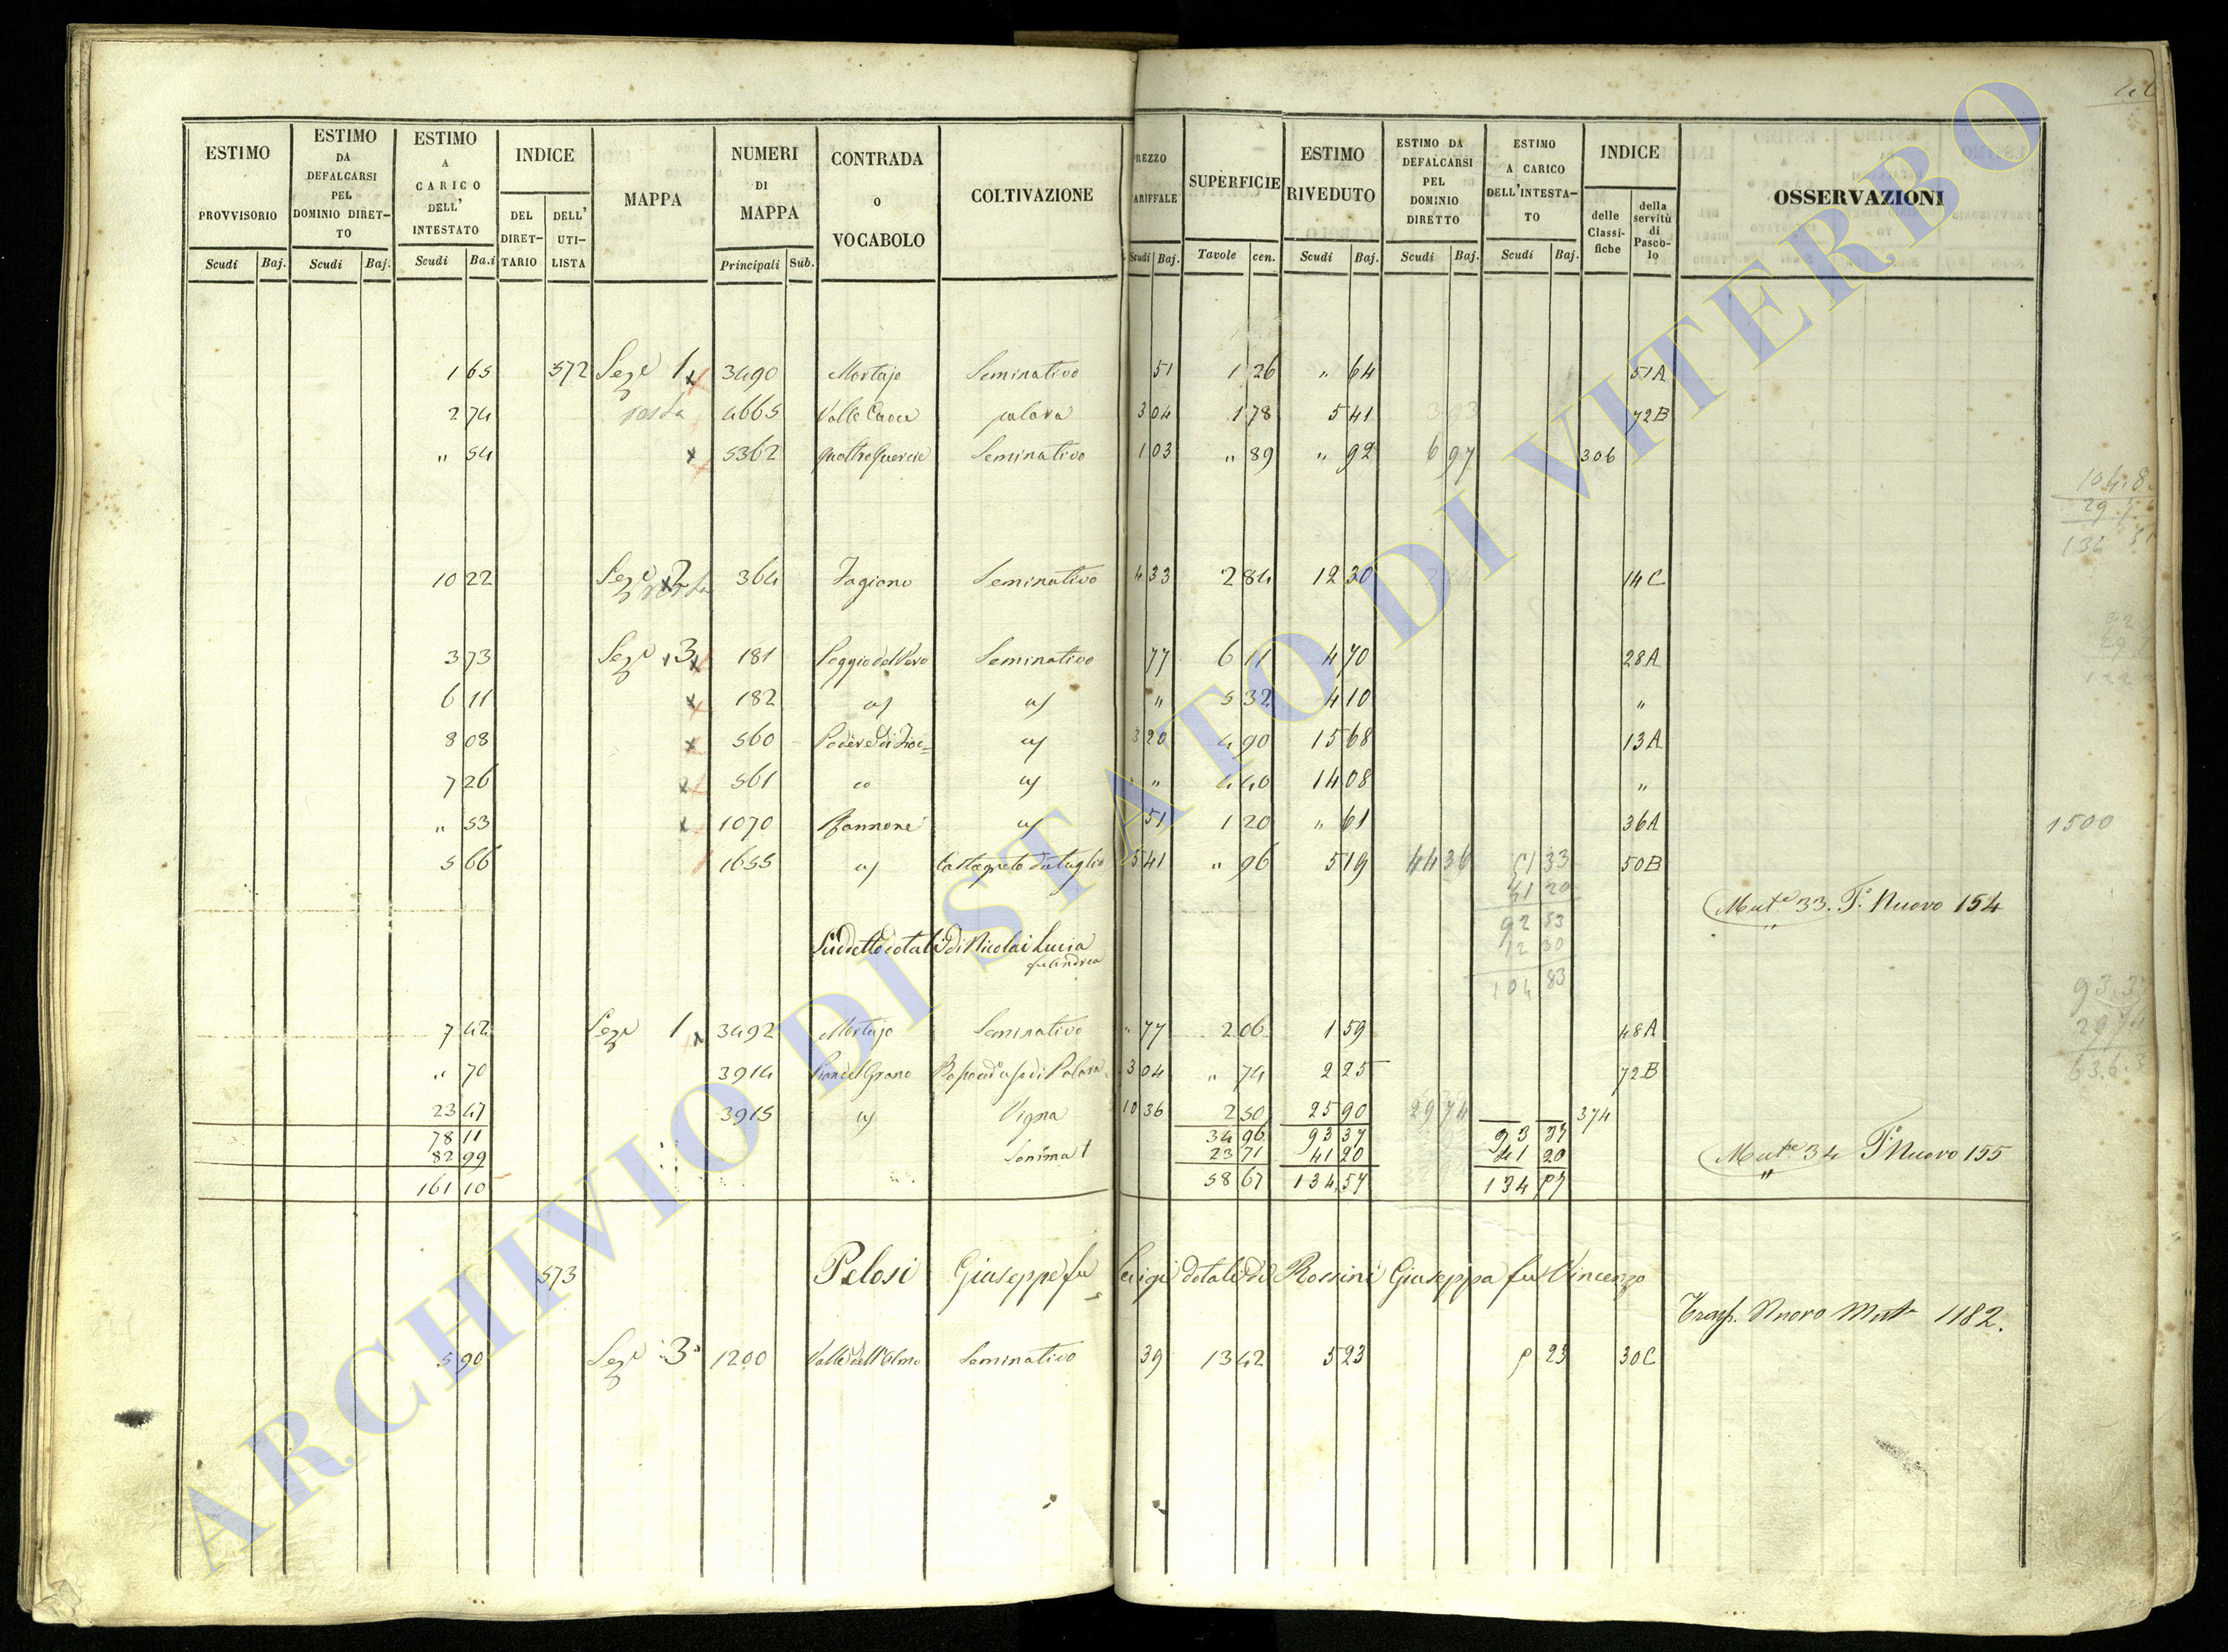 ESTIMO PROVVISORIO Scudi Baj.
ESTIMO DA DEFALCARSI PEL DOMINIO DIRET-TO Scudi Baj.
ESTIMO A CARICO DELL' INTESTATO Scudi Ba.i
INDICE DEL DIRET-TARIO DELL' UTI-LISTA
MAPPA
NUMERI DI MAPPA Principali Sub.
CONTRADA o VOCABOLO
COLTIVAZIONE
REZZO ARIFFALE Scudi Baj.
SUPERFICIE Tavole cen.
ESTIMO RIVEDUTO Scudi Baj.
ESTIMO DA DEFALCARSI PEL DOMINIO DIRETTO Scudi Baj.
ESTIMO A CARICO DELL'INTESTA-TO Scudi Baj.
INDICE delle Classi-fiche della servitù di Pasco-lo
OSSERVAZIONI
1 65 572 Seze 1 3490 Mortajo Seminativo 51 1 26 " 64 51A
2 74 resta 4665 Valle Cupa 3 04 1 78 5 41 72B
" 54 5362 Seminativo 1 03 " 89 " 92 6 97 306
10 22 Seze 2 364 Fagiano Seminativo 4 33 2 84 12 30 14C
3 73 Seze 3 181 Seminativo 77 6 11 4 70 28A
6 11 182 " 5 32 4 10 "
8 08 560 3 20 4 90 15 68 13A
7 26 561 " 4 40 14 08 "
" 53 1070 51 1 20 " 61 36A
5 66 1655 Castagneto da taglio 5 41 " 96 5 19 44 36 51 33 50B
41 20
92 53
12 30
104 83
Mute 33. F. Nuovo 154
Suddetto dotale di Nicolai Lucia
fu Andrea
7 42 Seze 1 3492 Mortajo Seminativo " 77 2 06 1 59 48A
" 70 3914 Pian del Grano 3 04 " 74 2 25 72B
23 47 3915 Vigna 10 36 2 50 25 90 29 74 374
78 11 34 96 93 37 93 37
82 99 23 71 41 20 41 20
161 10 58 67 134,57 134 57
Mute 34 F. Nuovo 155
573 Pelosi Giuseppe fu Luigi dotale di Rossini Giuseppa fu Vincenzo
Trasp. Nuovo Mut 1182.
5 90 Seze 3 1200 Valle dell'Olmo Seminativo 39 13 42 5 23 5 23 30C
1500
ARCHIVIO DI STATO DI VITERBO